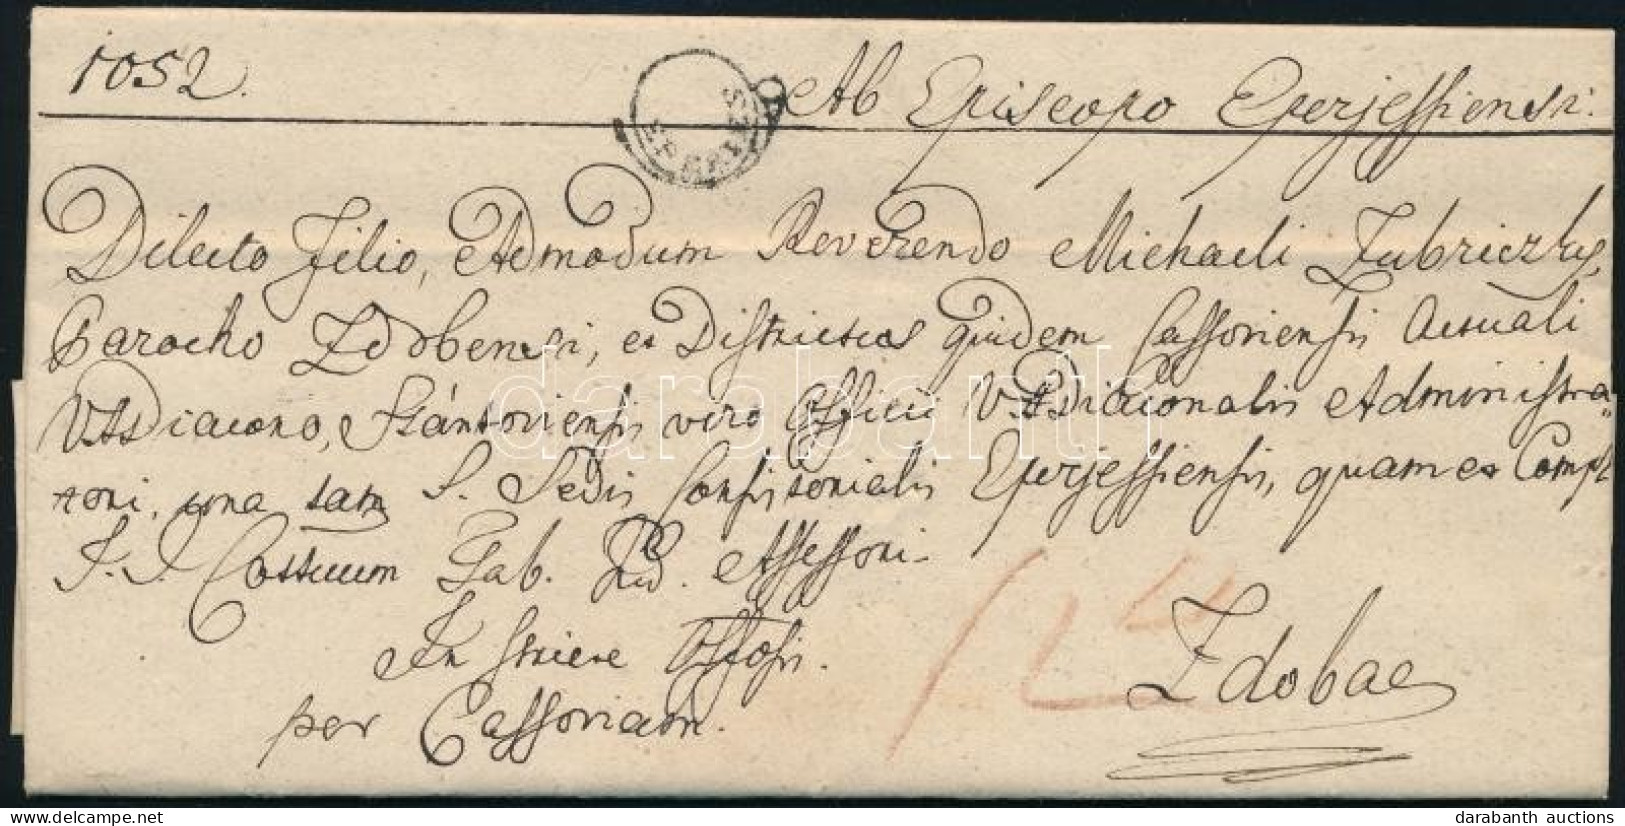 1052.
Ab Episcopo Eperjessiensi.
EPERJES
Dilecto Filio, Admodum Reverendo Michaeli Zubriczky,
Parocho Zdobensi, et Districtus quidem Cassoviensis Actuali
VADiacono, Szántoviensis vero Officii VADiaconalis Administra=
tori, una tam S. Sedis Consistorialis Eperjessiensis, quam et Compl
I. I. Cottuum Tab. Jud. Assessori.
In Strictte Ossosi.
per Cassoviam.
Zdobae
darabanth
delcampe.net
darabanth auctions